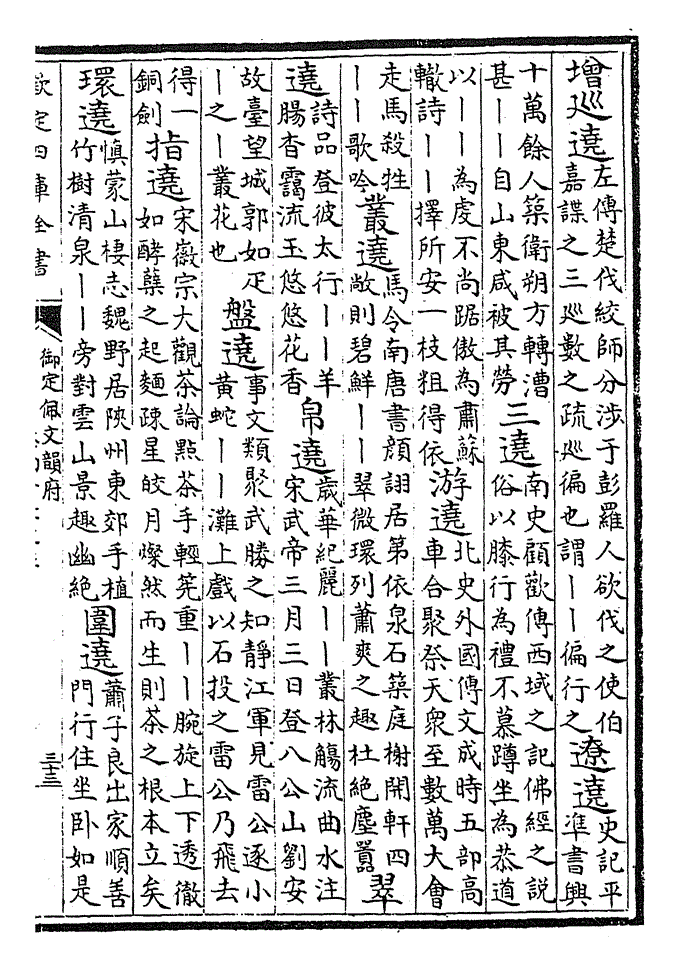 增巡遶左傳楚伐絞師分涉于彭羅人欲伐之使伯嘉諜之三巡數之疏巡徧也謂丨丨徧行之遼遶史記平準書興
十萬餘人築衛朔方轉漕甚丨丨自山東咸被其勞三遶南史顧歡傳西域之記佛經之說俗以膝行為禮不慕蹲坐為恭道
以丨丨為虔不尚踞傲為肅蘇轍詩丨丨擇所安一枝粗得依游遶北史外國傳文成時五部高車合聚祭天衆至數萬大會
走馬殺牲丨丨歌吟叢遶馬令南唐書顔詡居第依泉石築庭榭開軒四敞則碧鮮丨丨翠微環列蕭爽之趣杜絶塵囂翠
遶詩品登彼太行丨丨羊腸杳靄流玉悠悠花香帛遶歲華紀麗丨丨叢林觴流曲水注宋武帝三月三日登八公山劉安
故臺望城郭如疋丨之丨叢花也盤遶事文類聚武勝之知靜江軍見雷公逐小黃蛇丨丨灘上戲以石投之雷公乃飛去
得一銅劍指遶宋徽宗大觀茶論點茶手輕筅重丨丨腕旋上下透徹如酵蘖之起麵疎星皎月燦然而生則茶之根本立矣
環遶慎蒙山棲志魏野居陝州東郊手植竹樹清泉丨丨旁對雲山景趣幽絶圍遶蕭子良出家順善門行住坐卧如是
欽定四庫全書
御定佩文韻府
三十三